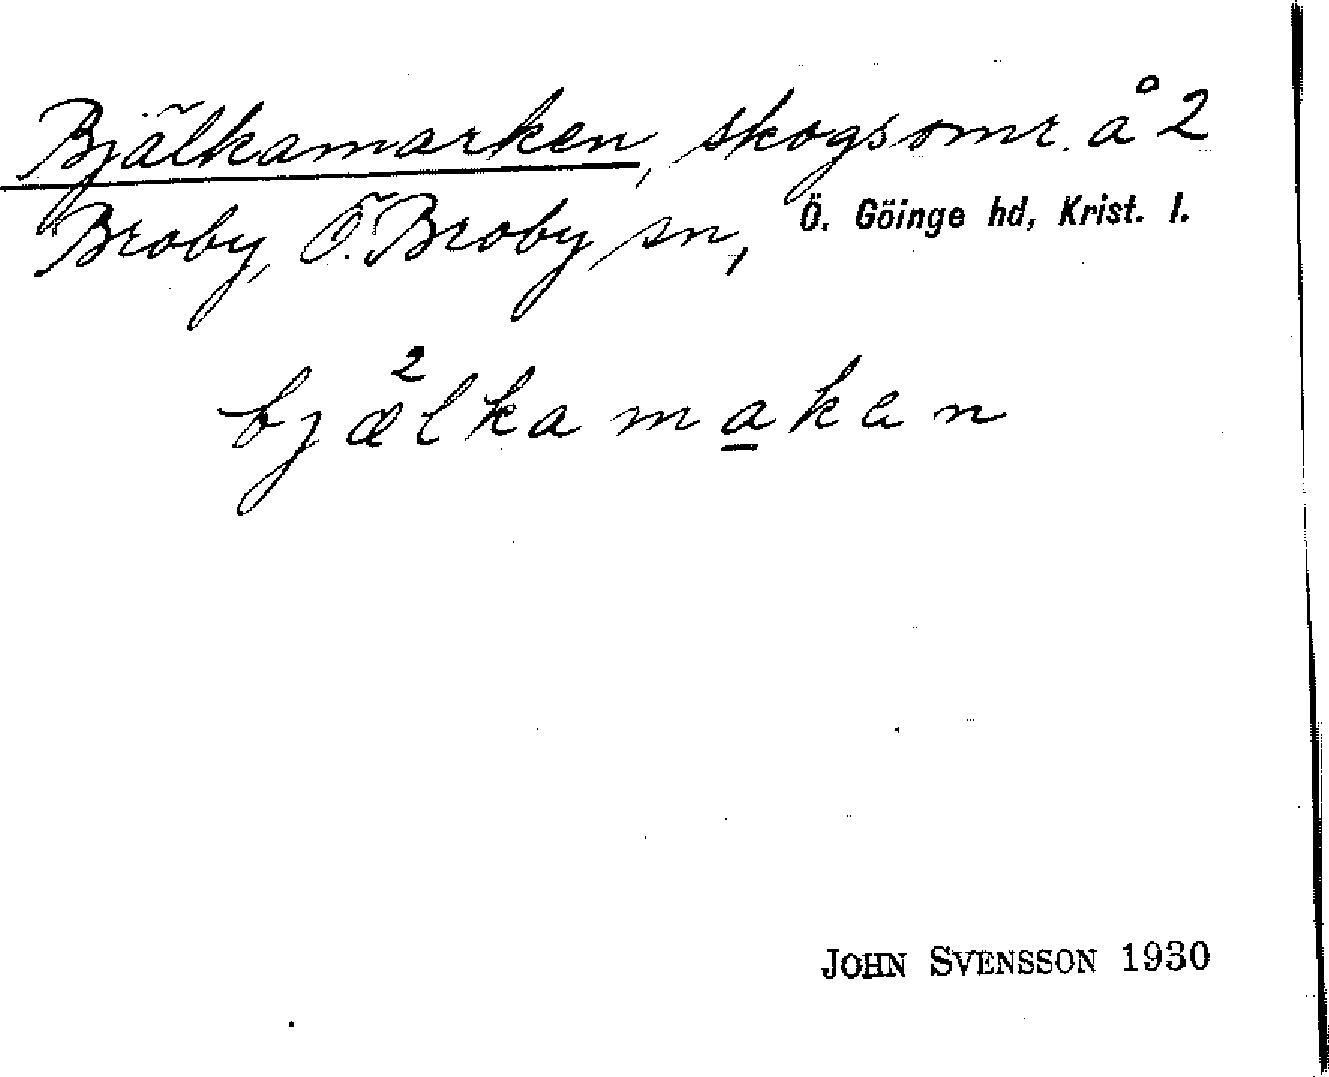 Bjälkamarken, skogsomr. å 2
Broby, Ö. Broby sn, Ö. Göinge hd, Krist. l.
bjæ²lkamakan
JOHN SVENSSON 1930